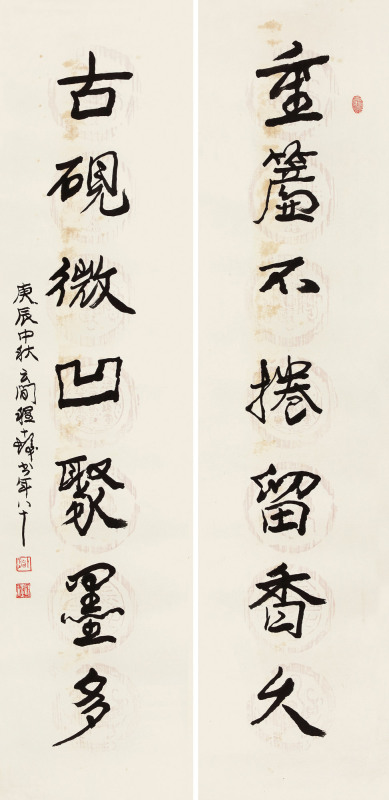 重簾不捲留香久
古硯微凹聚墨多
庚辰中秋云間程十髮書年八十